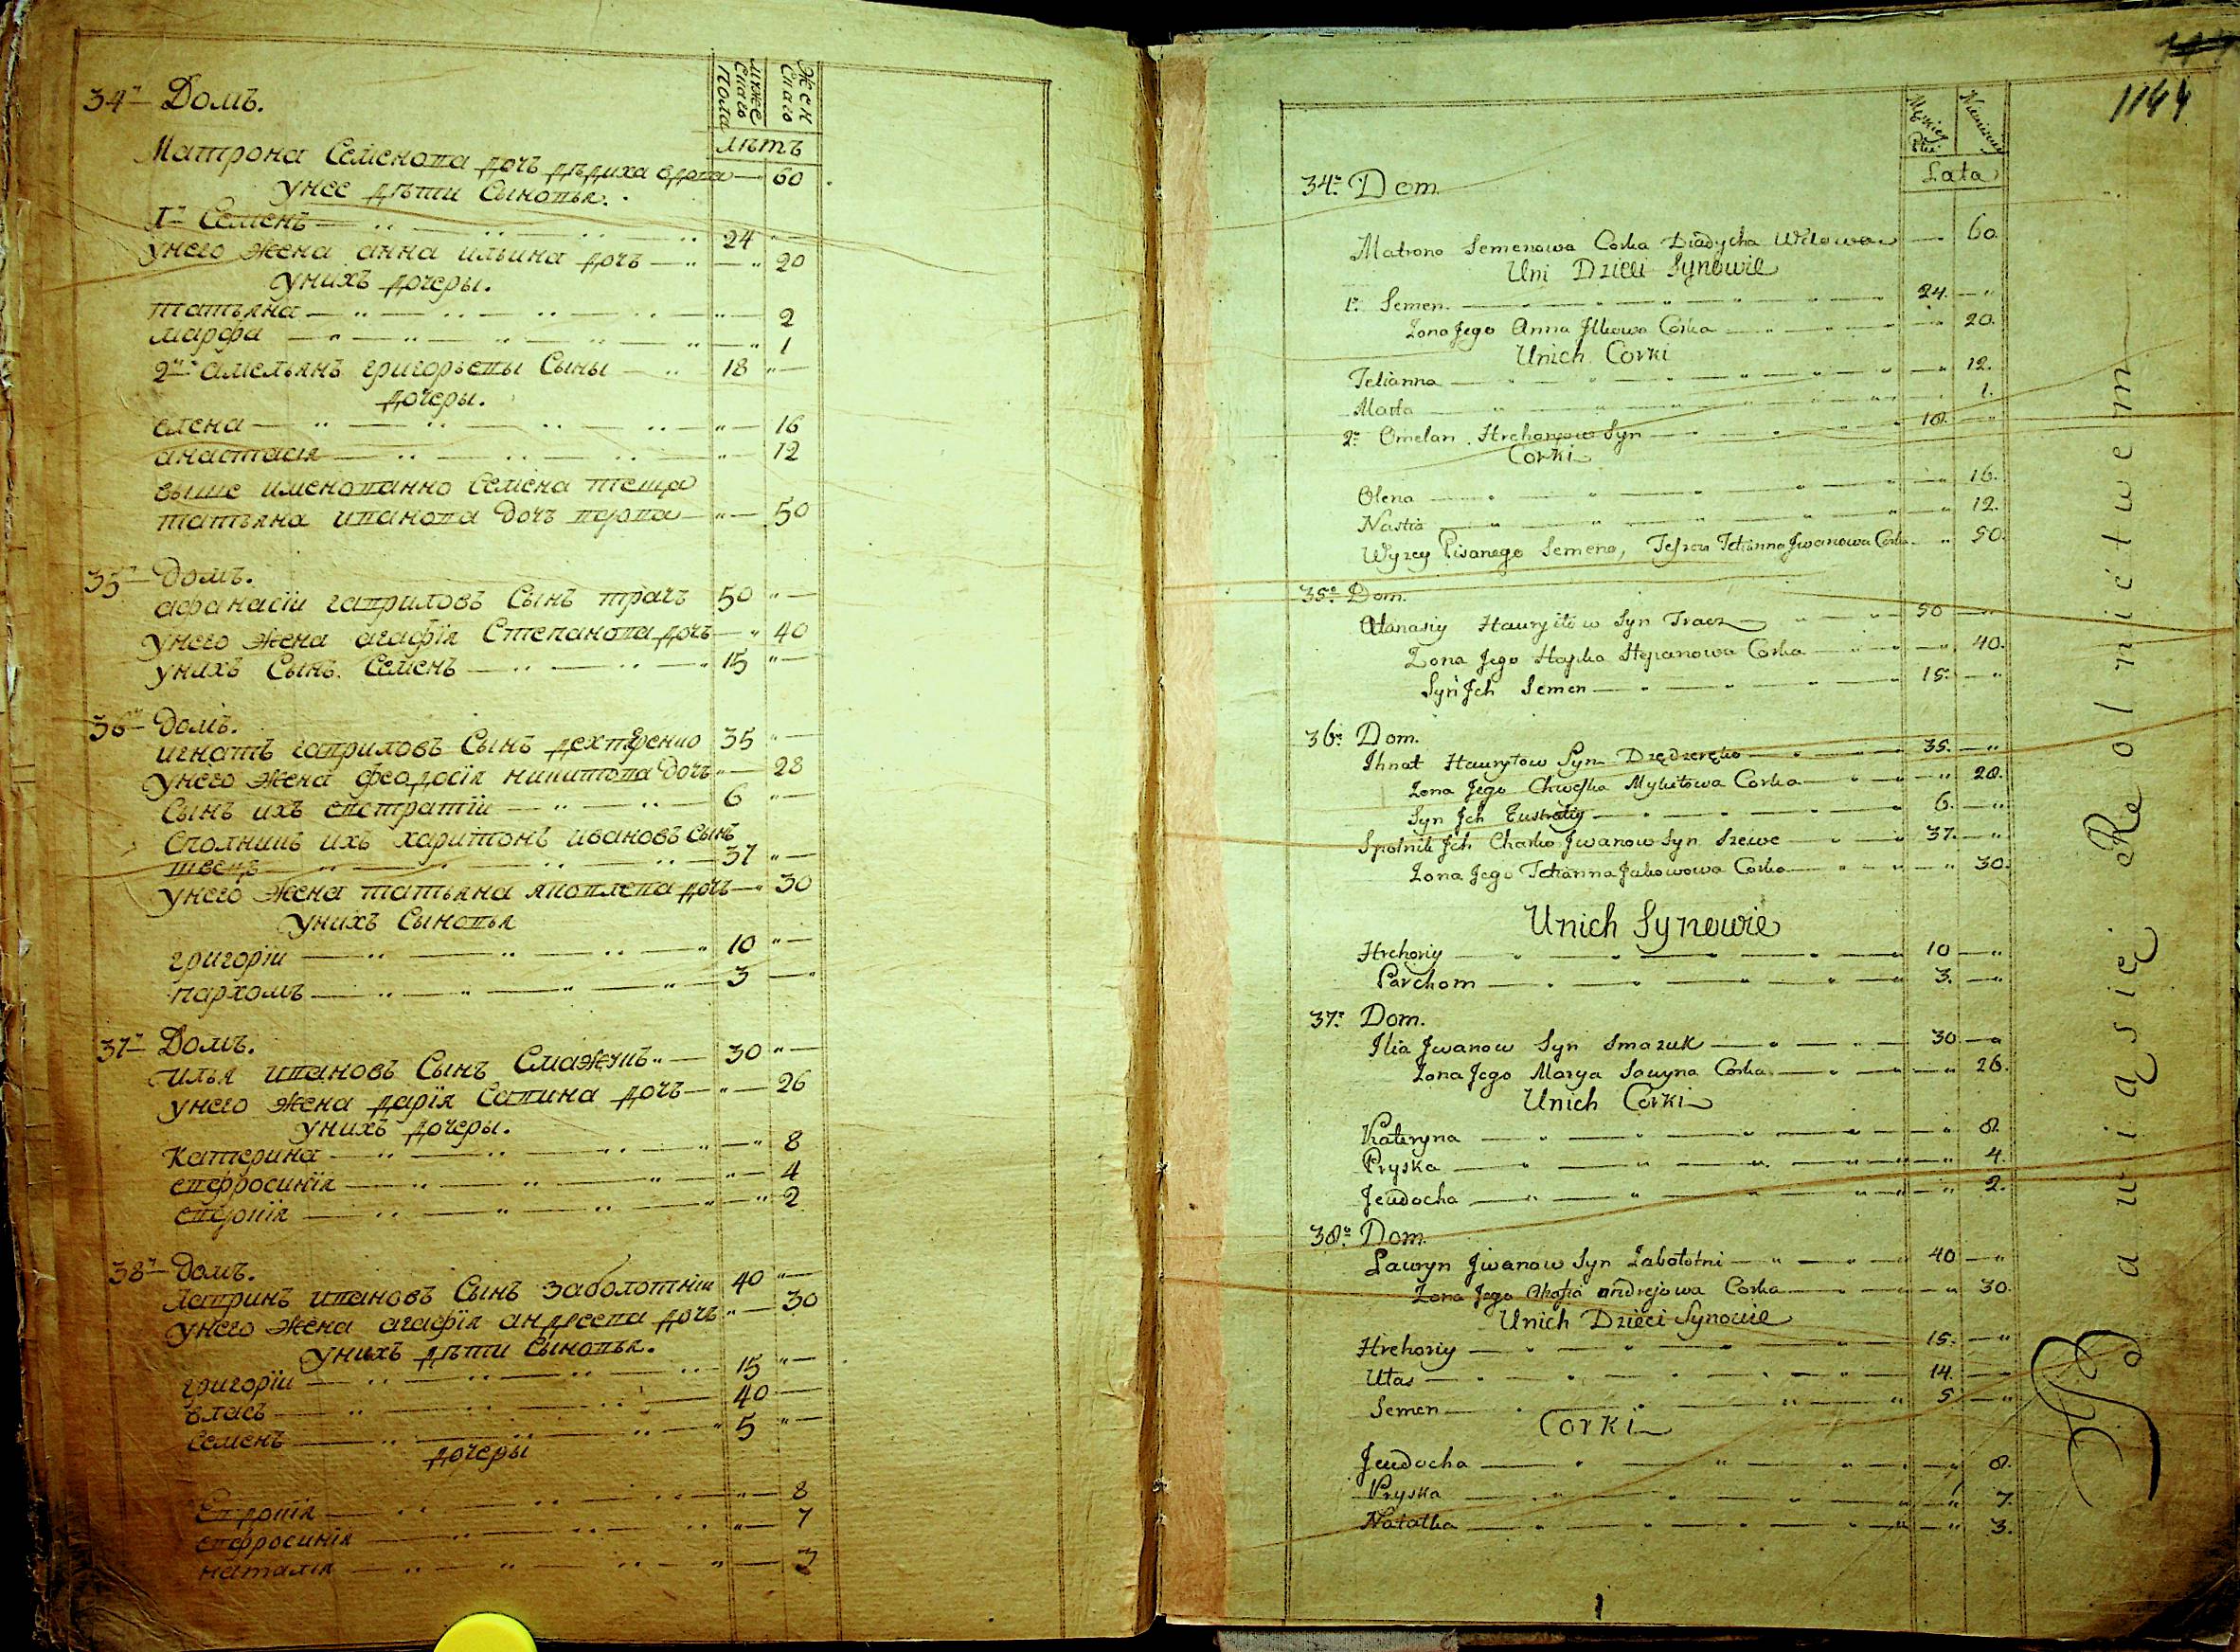 мужеска го пола
Женска го
лѣтъ
34й Домъ.
Матрона Семенова дочь дѣдиха вдова — 60
унее дѣти Сыновья.
1й Семенъ — 24
унего жена анна ильина дочь — 20
унихъ дочеры.
татьяна — 2
марфа — 1
2й амельянъ григорьевы Сыны — 18
дочеры.
елена — 16
анастасія — 12
выше именованно Семена теща
татьяна иванова дочь вдова — 50
35й домъ.
афанасіи гавриловъ Сынъ трачъ 50
унего жена агафія Степанова дочь — 40
унихъ Сынъ Семенъ — 15
36й домъ.
игнатъ гавриловъ Сынъ 35
унего жена феодосія никитова дочь — 28
Сынъ ихъ евстратіи — 6
Сполникъ ихъ харитонъ ивановъ Сынъ
швецъ — 37
унего жена татьяна яковлева дочь — 30
унихъ Сыновья
григоріи — 10
пархомъ — 3
37й Домъ.
илья ивановъ Сынъ Смажукъ — 30
унего жена дарія Савина дочь — 26
унихъ дочеры.
Катерина — 8
евфросинія — 4
евдокія — 2
38й домъ.
лавринъ ивановъ Сынъ заболотніи 40
унего жена агафія андреева дочь — 30
унихъ дѣти Сыновья.
григоріи — 15
власъ — 40
Семенъ — 5
дочеры
Евдокія — 8
евфросинія — 7
наталія — 3
1144
Lata
34: Dom
Matrona Semenowa Corka Diadycha Wdowa — 60.
Uni Dzieci Synowie
1: Semen — 24.
Zona Jego Anna Jlkowa Corka — 20.
Unich Corki
Tetianna — 12.
Marta — 1.
2: Omelan Hrehorow Syn — 18.
Corki
Olena — 16.
Nastia — 12.
Wyzey Pisanego Semena, Teszcza Tetianna Jwanowa Corka — 50.
35: Dom.
Atanasiy Hawryłow Syn Tracz — 50
Zona Jego Hapka Stepanowa Corka — 40.
Syn Jch Semen — 15.
36: Dom.
Ihnat Hawryłow Syn — 35.
Zona Jego Chweśka Mykitowa Corka — 28.
Syn Jch Eustratiy — 6.
Spolnik Jch Charko Jwanow Syn Szewc — 37.
Zona Jego Tetianna Jakowowa Corka — 30.
Unich Synowie
Hrehoriy — 10
Parchom — 3.
37: Dom.
Ilia Jwanow Syn Smazuk — 30
Zona Jego Marya Sawyna Corka — 26.
Unich Corki
Kateryna — 8.
Pryska — 4.
Jeudocha — 2.
38: Dom
Lawryn Jwanow Syn Zabołotni — 40
Zona Jego Ahafia Andrejowa Corka — 30.
Unich Dzieci Synowie
Hrehoriy — 15.
Ułas — 14.
Semen — 5
Corki
Jeudocha — 8.
Pryska — 7.
Natalka — 3.
Bawiąsię Rolnictwem